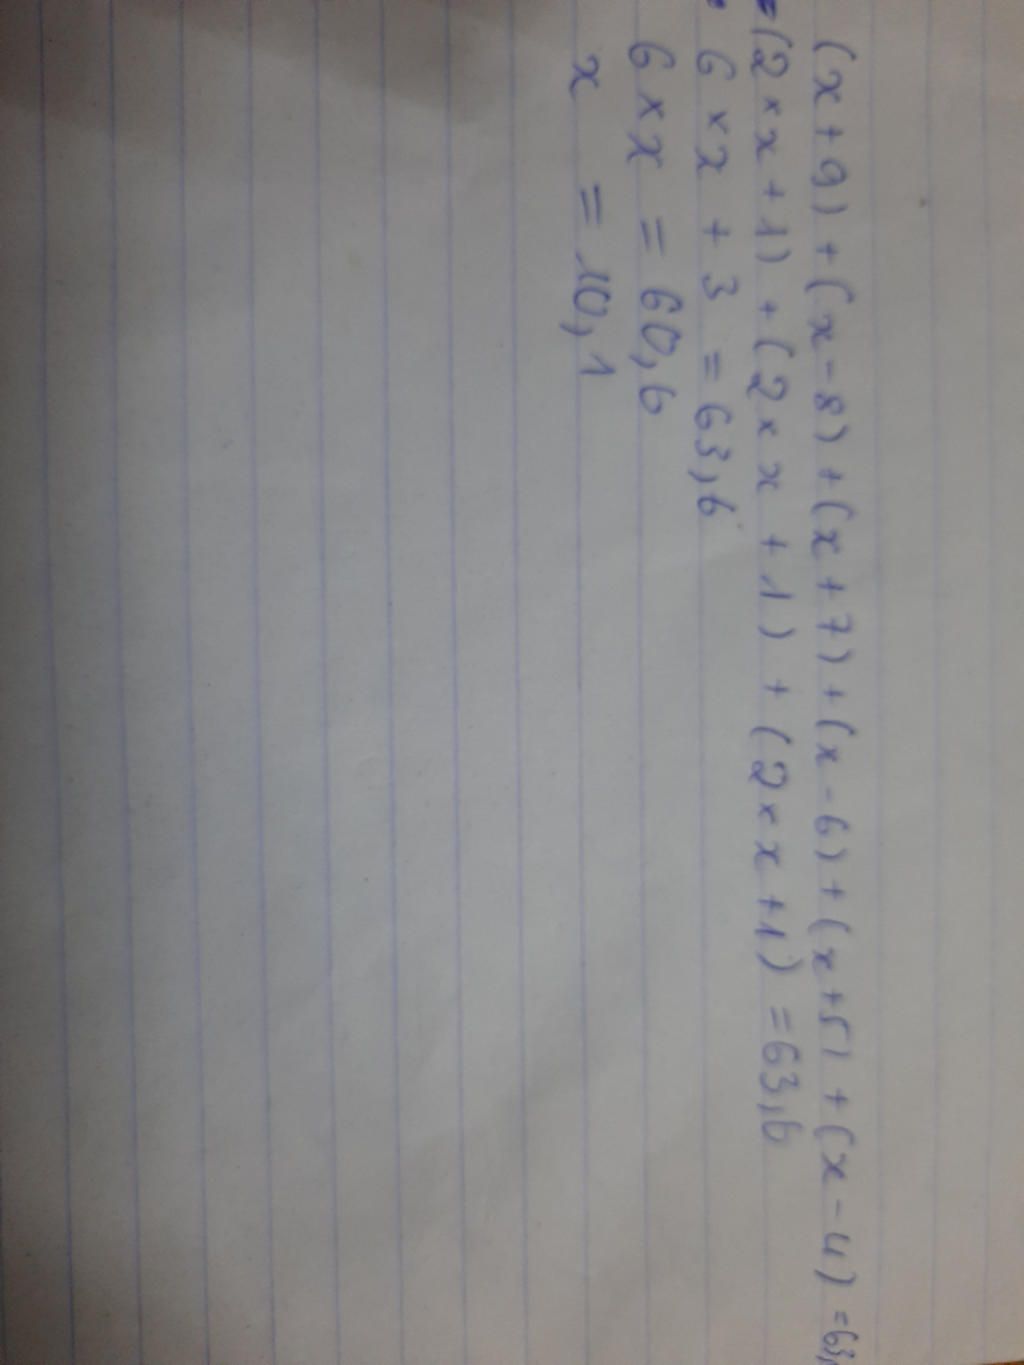 (x+9)+(x-8)+(x+7)+(x-6)+(x+5)+(x-4)=63,
=(2×x+1)+(2×x+1)+(2×x+1)=63,6
6×x+3=63,6
6×x=60,6
x=10,1